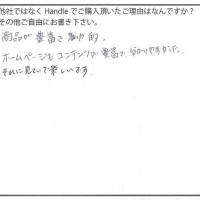 他社ではなく Handle でご購入頂いたご理由はなんですか?
その他ご自由にお書き下さい。
商品が豊富で魅力的。
ホームページもコンテンツが豊富で、分かりやすかった。
それに見ていて楽しいです